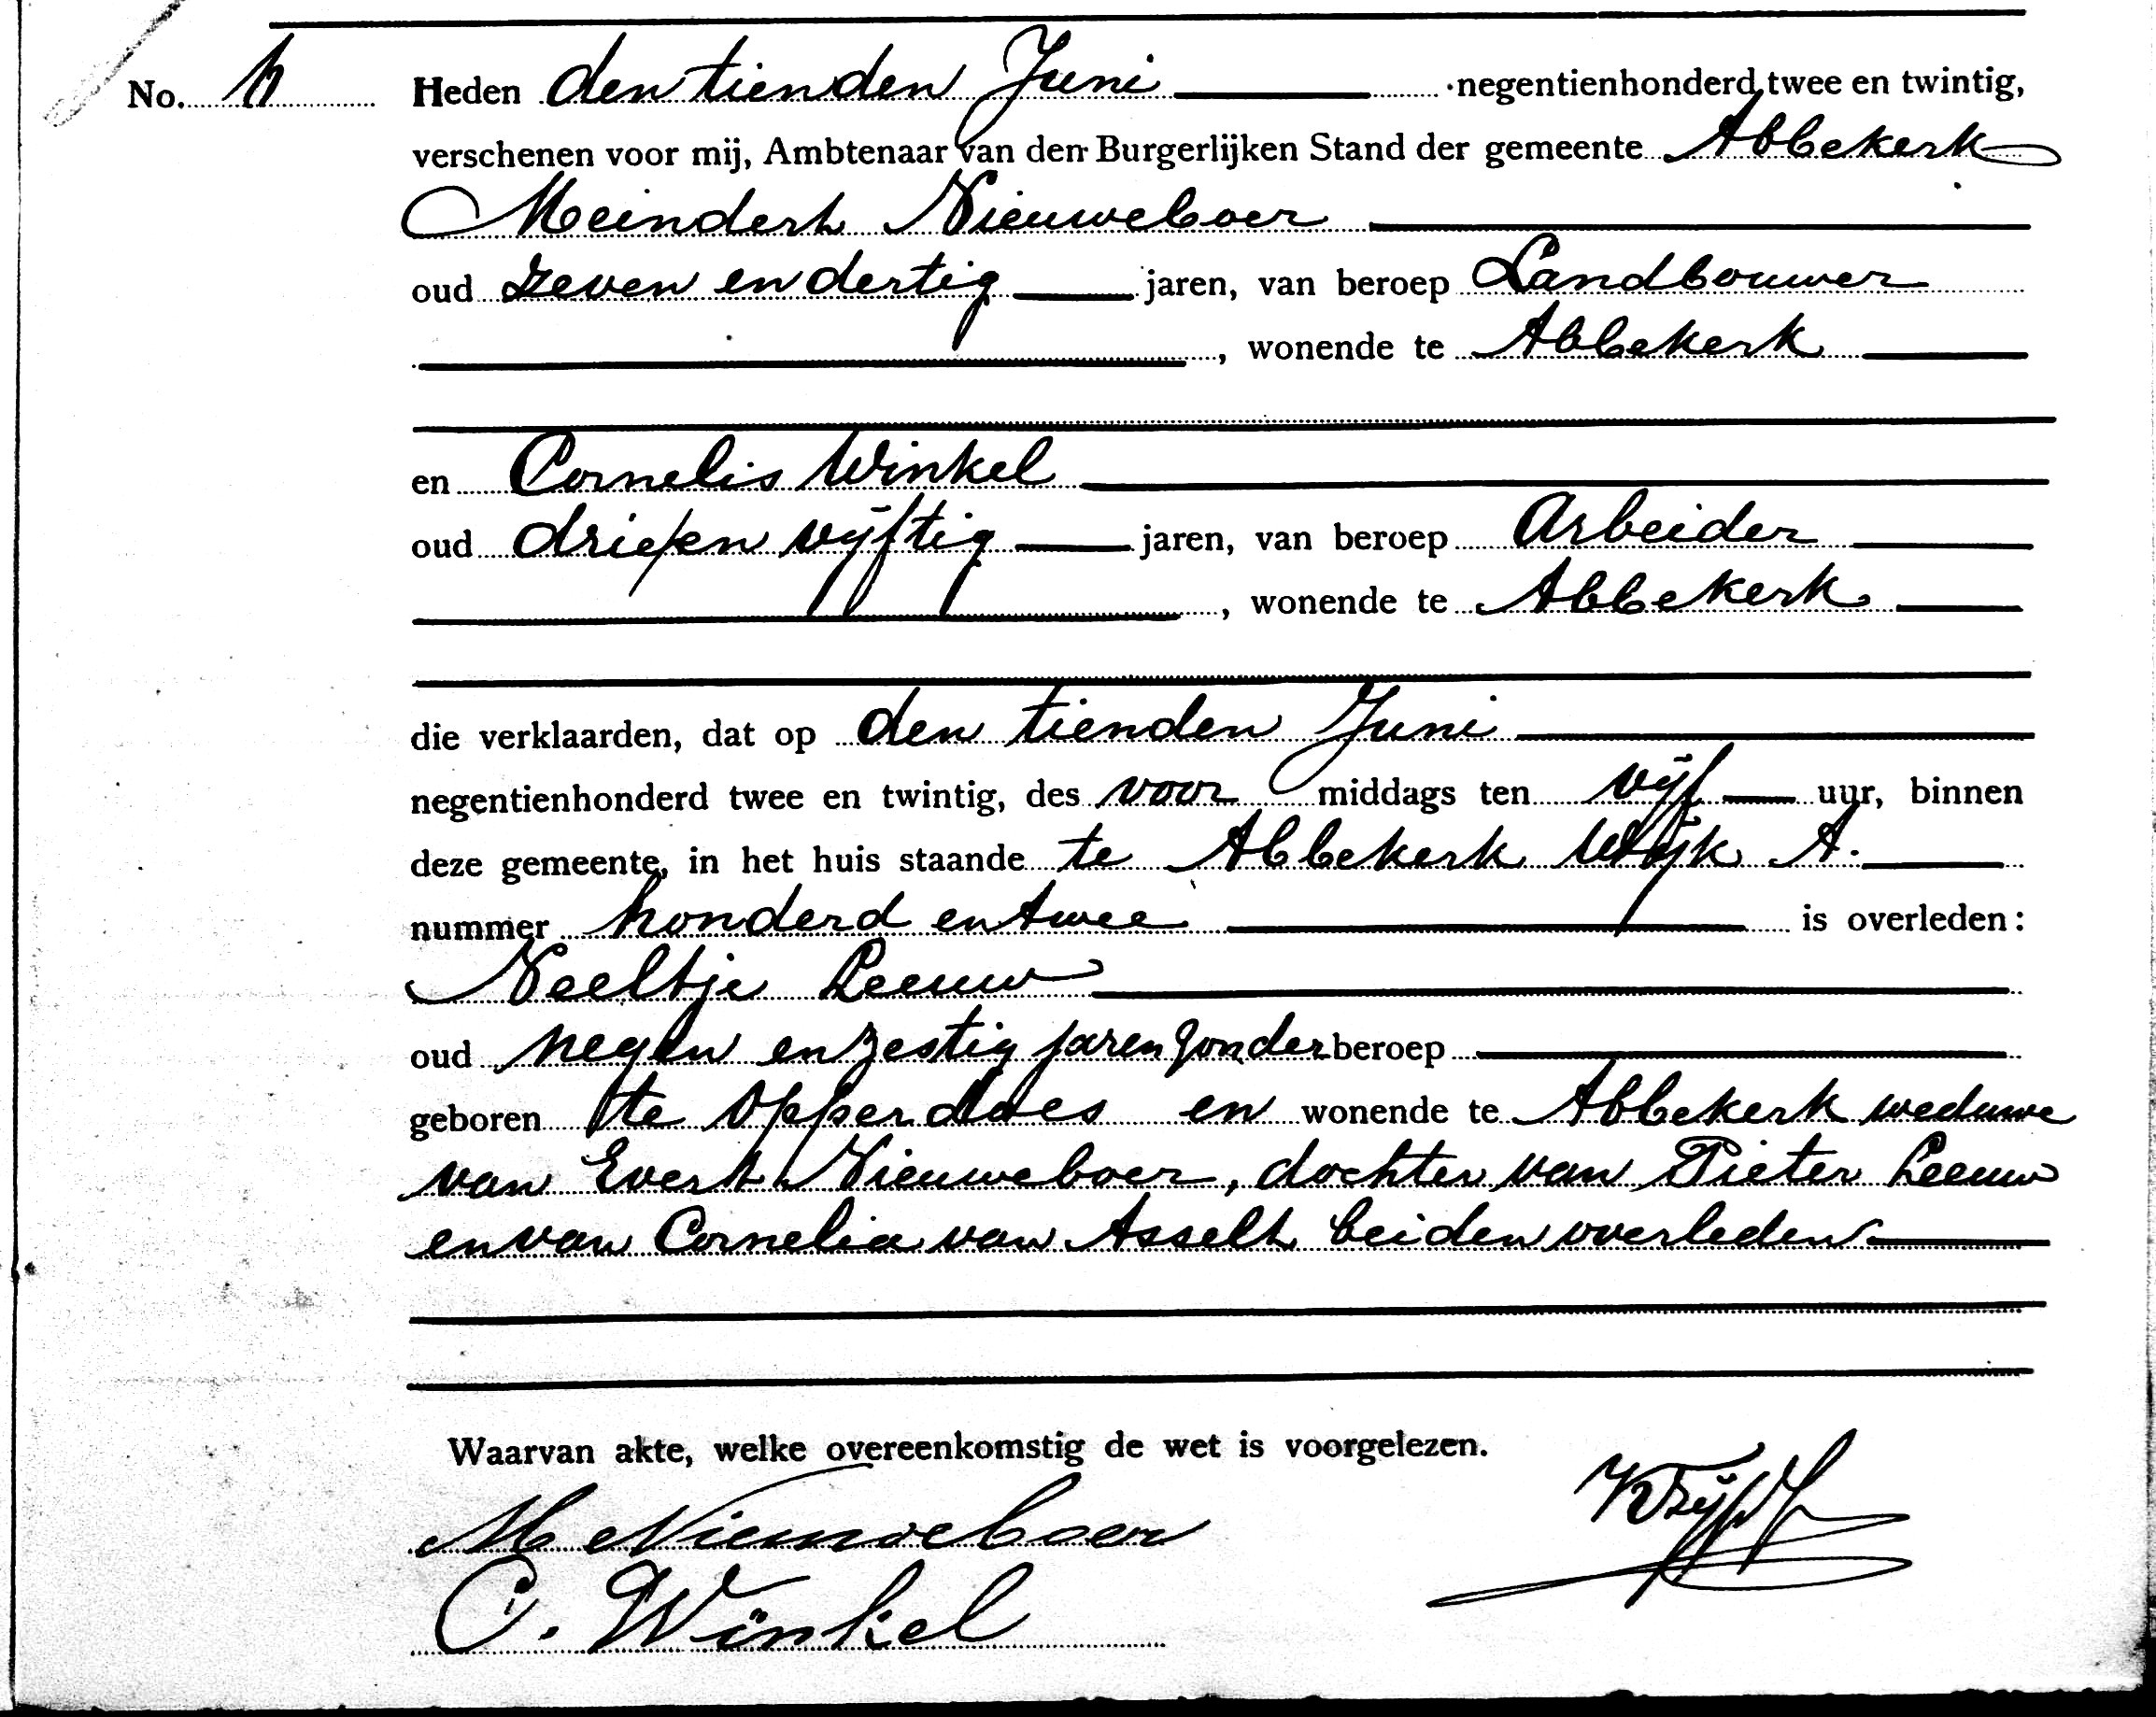 No. Heden den tienden Juni negentienhonderd twee en twintig,
verschenen voor mij, Ambtenaar van den Burgerlijken Stand der gemeente Abbekerk
Meindert Nieuweboer
oud zeven en dertig jaren, van beroep Landbouwer
, wonende te Abbekerk
en Cornelis Winkel
oud drie en vijftig jaren, van beroep Arbeider
, wonende te Abbekerk
die verklaarden, dat op den tienden Juni
negentienhonderd twee en twintig, des voor middags ten vijf uur, binnen
deze gemeente, in het huis staande te Abbekerk Wijk A.
nummer honderd en twee is overleden:
Neeltje Leeuw
oud negen en zestig jaren zonder beroep
geboren te Opperdoes en wonende te Abbekerk weduwe
van Evert Nieuweboer, dochter van Pieter Leeuw
en van Cornelia van Asselt beiden overleden.
Waarvan akte, welke overeenkomstig de wet is voorgelezen.
M Nieuweboer
C. Winkel